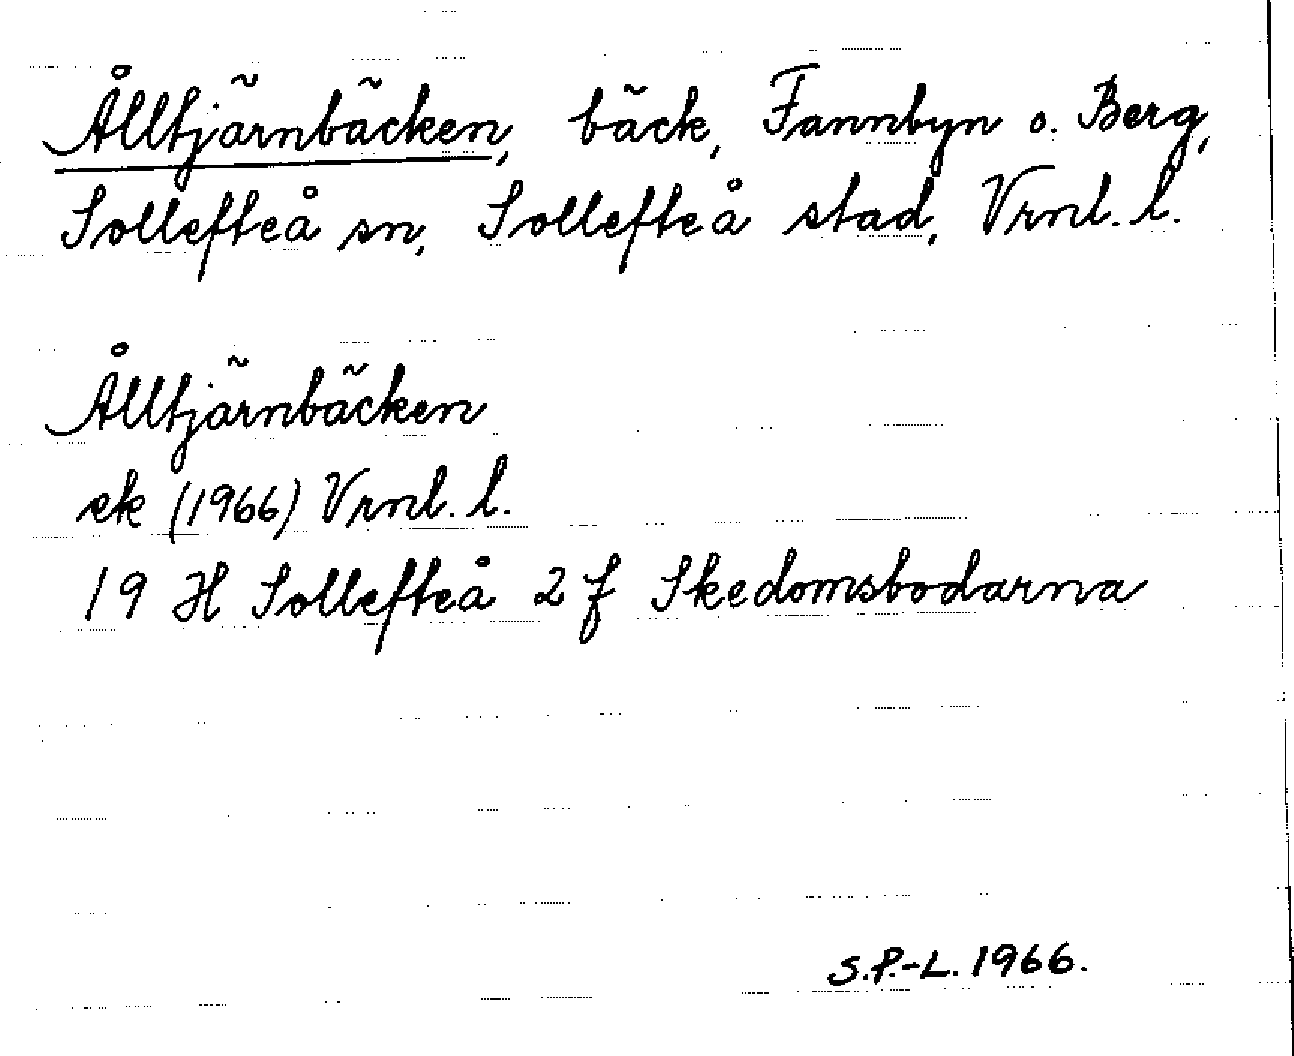 Ålltjärnbäcken, bäck, Fannbyn o. Berg,
Sollefteå sn, Sollefteå stad, Vrnl. l.
Ålltjärnbäcken
ek (1966) Vrnl. l.
19 H Sollefteå 2 f Skedomsbodarna
S.P.-L. 1966.